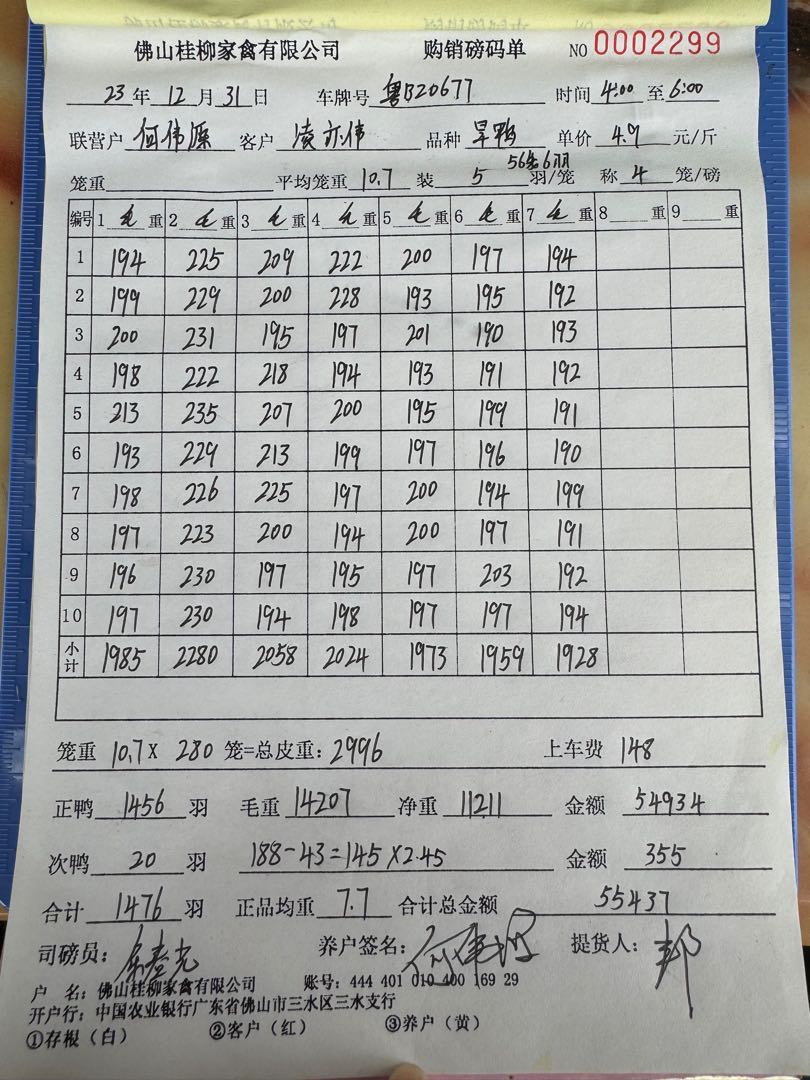 佛山桂柳家禽有限公司 购销磅码单 NO 0002299
23 年 12 月 31 日 车牌号 粤B20677 时间 4:00 至 6:00
联营户 何伟源 客户 凌亦伟 品种 旱鸭 单价 4.9 元/斤
56笼6羽
笼重 平均笼重 10.7 装 5 羽/笼 称 4 笼/磅
编号 1 毛 重 2 毛 重 3 毛 重 4 毛 重 5 毛 重 6 毛 重 7 毛 重 8 重 9 重
1 194 225 209 222 200 197 194
2 199 229 200 228 193 195 192
3 200 231 195 197 201 190 193
4 198 222 218 194 193 191 192
5 213 235 207 200 195 199 191
6 193 229 213 199 197 196 190
7 198 226 225 197 200 194 199
8 197 223 200 194 200 197 191
9 196 230 197 195 197 203 192
10 197 230 194 198 197 197 194
小计 1985 2280 2058 2024 1973 1959 1928
笼重 10.7 X 280 笼=总皮重: 2996 上车费 148
正鸭 1456 羽 毛重 14207 净重 11211 金额 54934
次鸭 20 羽 188-43=145×2.45 金额 355
合计 1476 羽 正品均重 7.7 合计总金额 55437
司磅员: 养户签名: 提货人: 邦
户 名: 佛山桂柳家禽有限公司 账号: 444 401 010 400 169 29
开户行: 中国农业银行广东省佛山市三水区三水支行
①存根(白) ②客户(红) ③养户(黄)